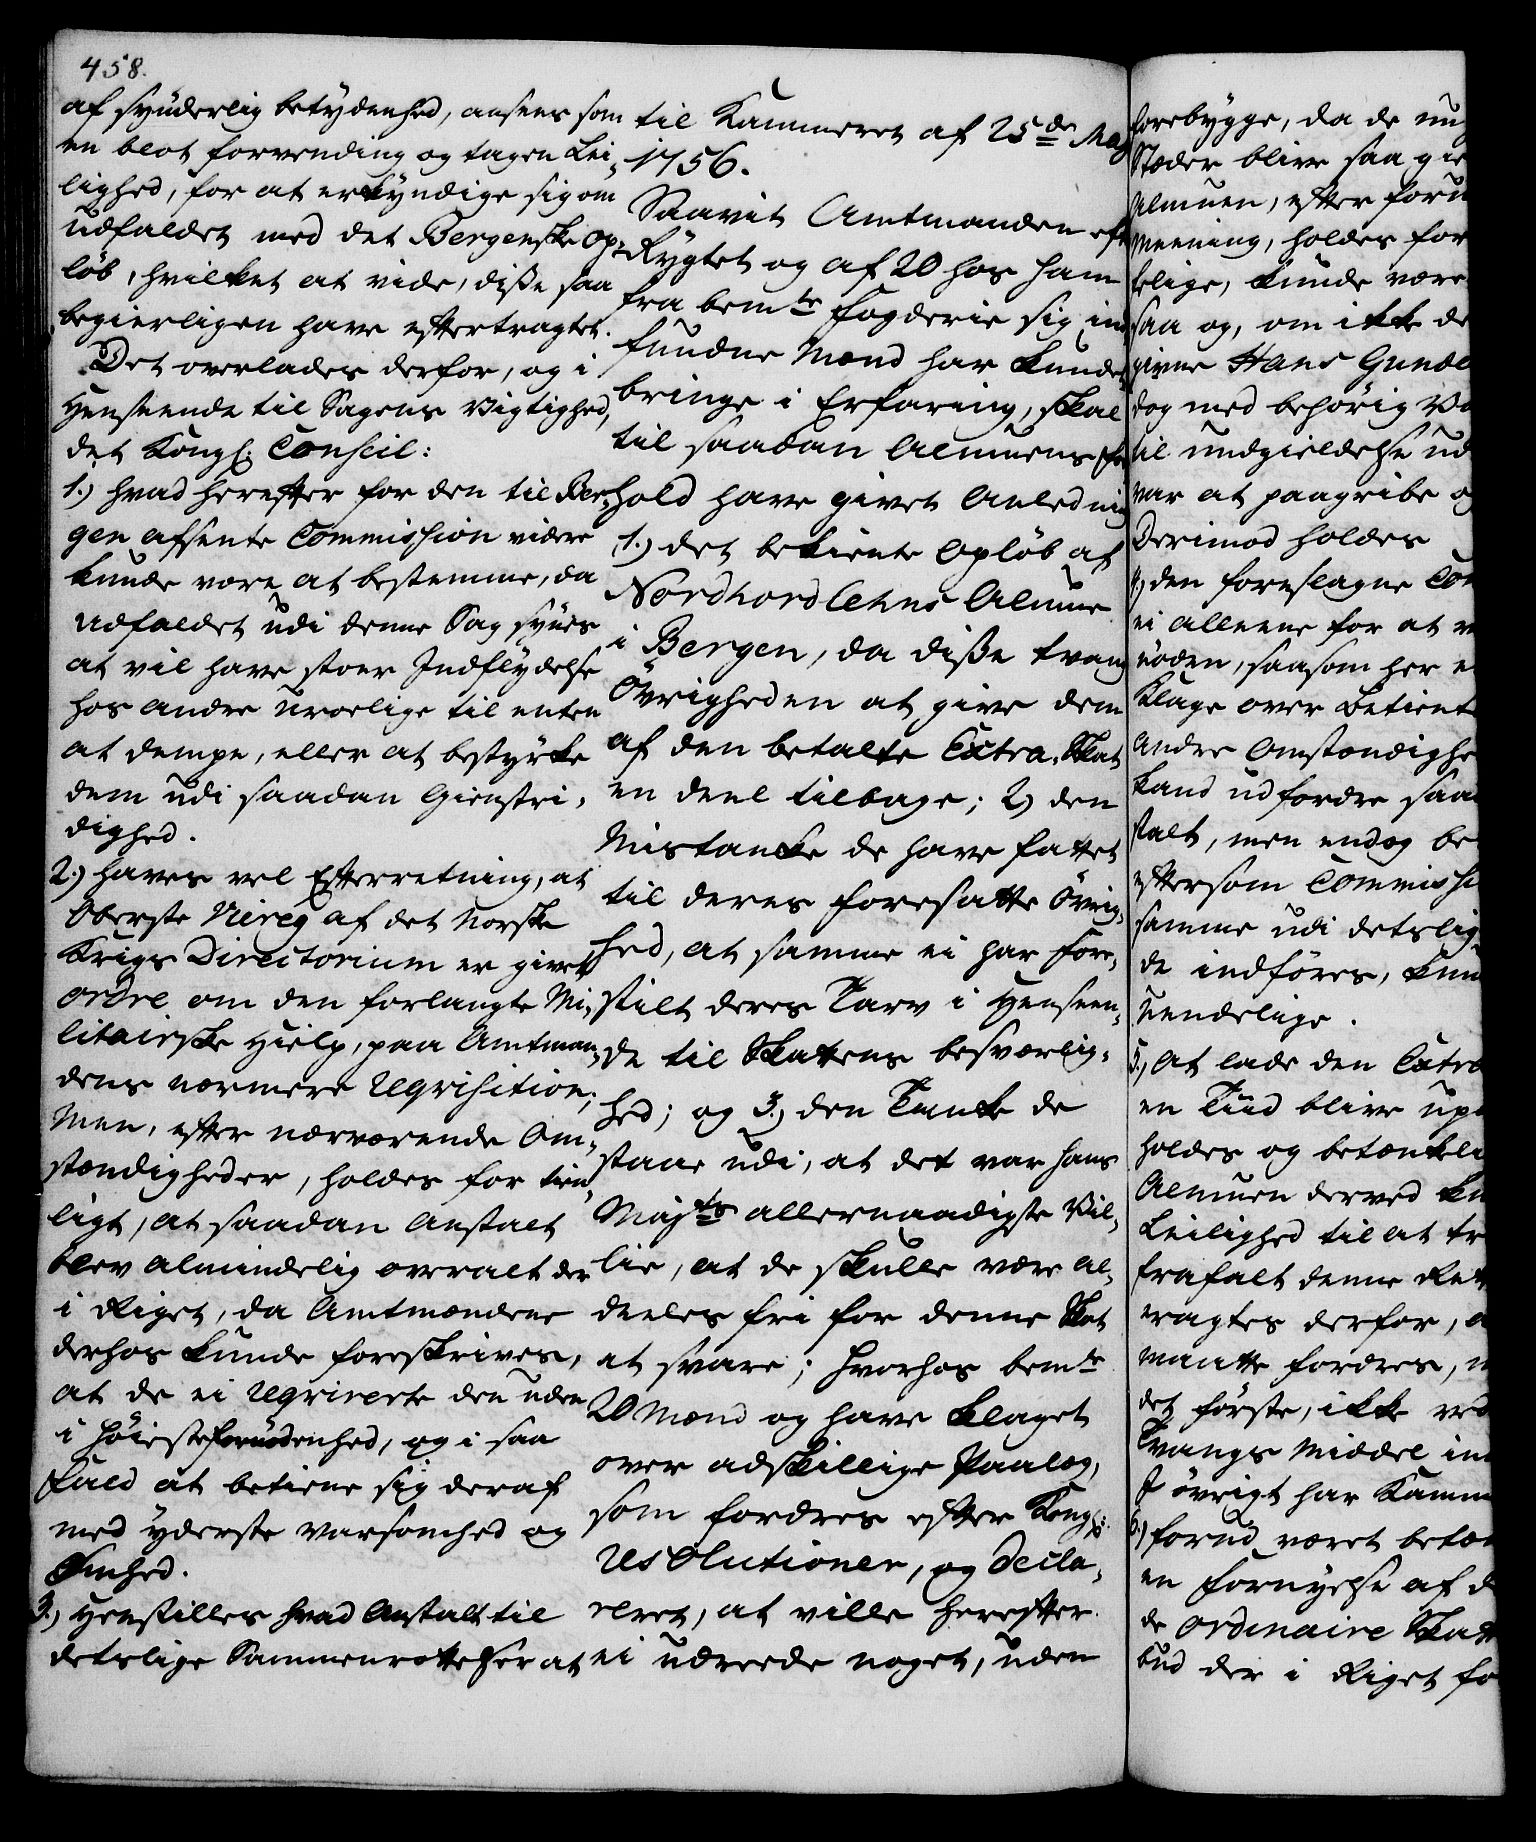 458.
af synderlig betydenhed, ansees som
en blot forvending og tagen Lei-
lighed, for at erkyndige sig om
udfaldet med det Bergenske Op-
løb, hvilket at vide, diſse saa
begierligen have eftertragtet.
Det overlades derfor, og i
Henseende til Sagens Vigtighed,
det Kongl: Conseil:
1.) hvad herefter for den til Ber-
gen afsente Commission videre
kunde være at bestemme, da
udfaldet udi denne Sag synes
at vil have stoer Indflydelse
hos andre uroelige til enten
at dempe, eller at bestyrke
dem udi saadan Gienstri-
dighed.
2.) haves vel Efterretning, at
Oberste Nireg af det Norske
Krigs Directorium er givet
ordre om den forlangte Mi-
litairske Hielp, paa Amtman-
dens nærmere Reqvisition;
Men, efter nærværende Om-
stændigheder, holdes for tien-
ligt, at saadan Anstalt
blev almindelig overalt der
i Riget, da Amtmændene
derhos kunde foreskrives,
at de ei reqvirerte den uden
i høieste fornødenhed, og i saa
fald at betiene sig deraf
med yderste varsomhed og
Ømhed.
3.) Henstilles hvad Anstalt til
detslige Sammenrottelser at
til Kammeret af 25de May
1756.
Saavit Amtmanden eft
Rygtet og af 20 hos ham
fra bemte Fogderie sig ind
fundne Mænd har kundet
bringe i Erfaring, skal
til saadan Almuens for
hold have givet Anledning
1.) det bekiente Opløb af
Nordhordlehns Almue
i Bergen, da diſse tvang
Øvrigheden at give dem
af den betalte Extra-Skat
en deel tilbage; 2) den
Mistanke de have fattet
til deres foresatte Øvrig-
hed, at samme ei har fore-
stilt deres Tarv i Henseen-
de til Skattens besværlig-
hed; og 3.) den Tanke de
staae udi, at det var hans
Majts allernaadigste Vil-
lie, at de skulle være al-
deeles fri for denne Skat
at svare; hvorhos bemte
20 Mænd og have klaget
over adskillige Paalæg,
som fordres efter Kongl:
Resolutioner, og decla-
reret, at ville herefter
ei udreede noget, uden
forebygge, da de
Stæder blive saa
Almuen, efter
Meening, holdes for
kunde være
saa og, om ikke de
givne Hans
dog med behørig
til undgieldelse
var at paagribe
Derimod holdes
4.) den foreslagne
ei alleene for at
saasom her
Klage over
Andre Omstændighe
kand udfordre saa
stalt, men endog
eftersom
samme udi detslig
de indføres,
uendelige.
5.) At lade den Extra
en Tiid blive
holdes og
Almuen derved
Leilighed til at
frafalt denne
ragtes derfor,
maatte fordres,
det første, ikke ved
Tvangs Middel
I øvrigt har Kamm
6.) forud været
en Fornyelse af
de ordinaire
bud der i Riget